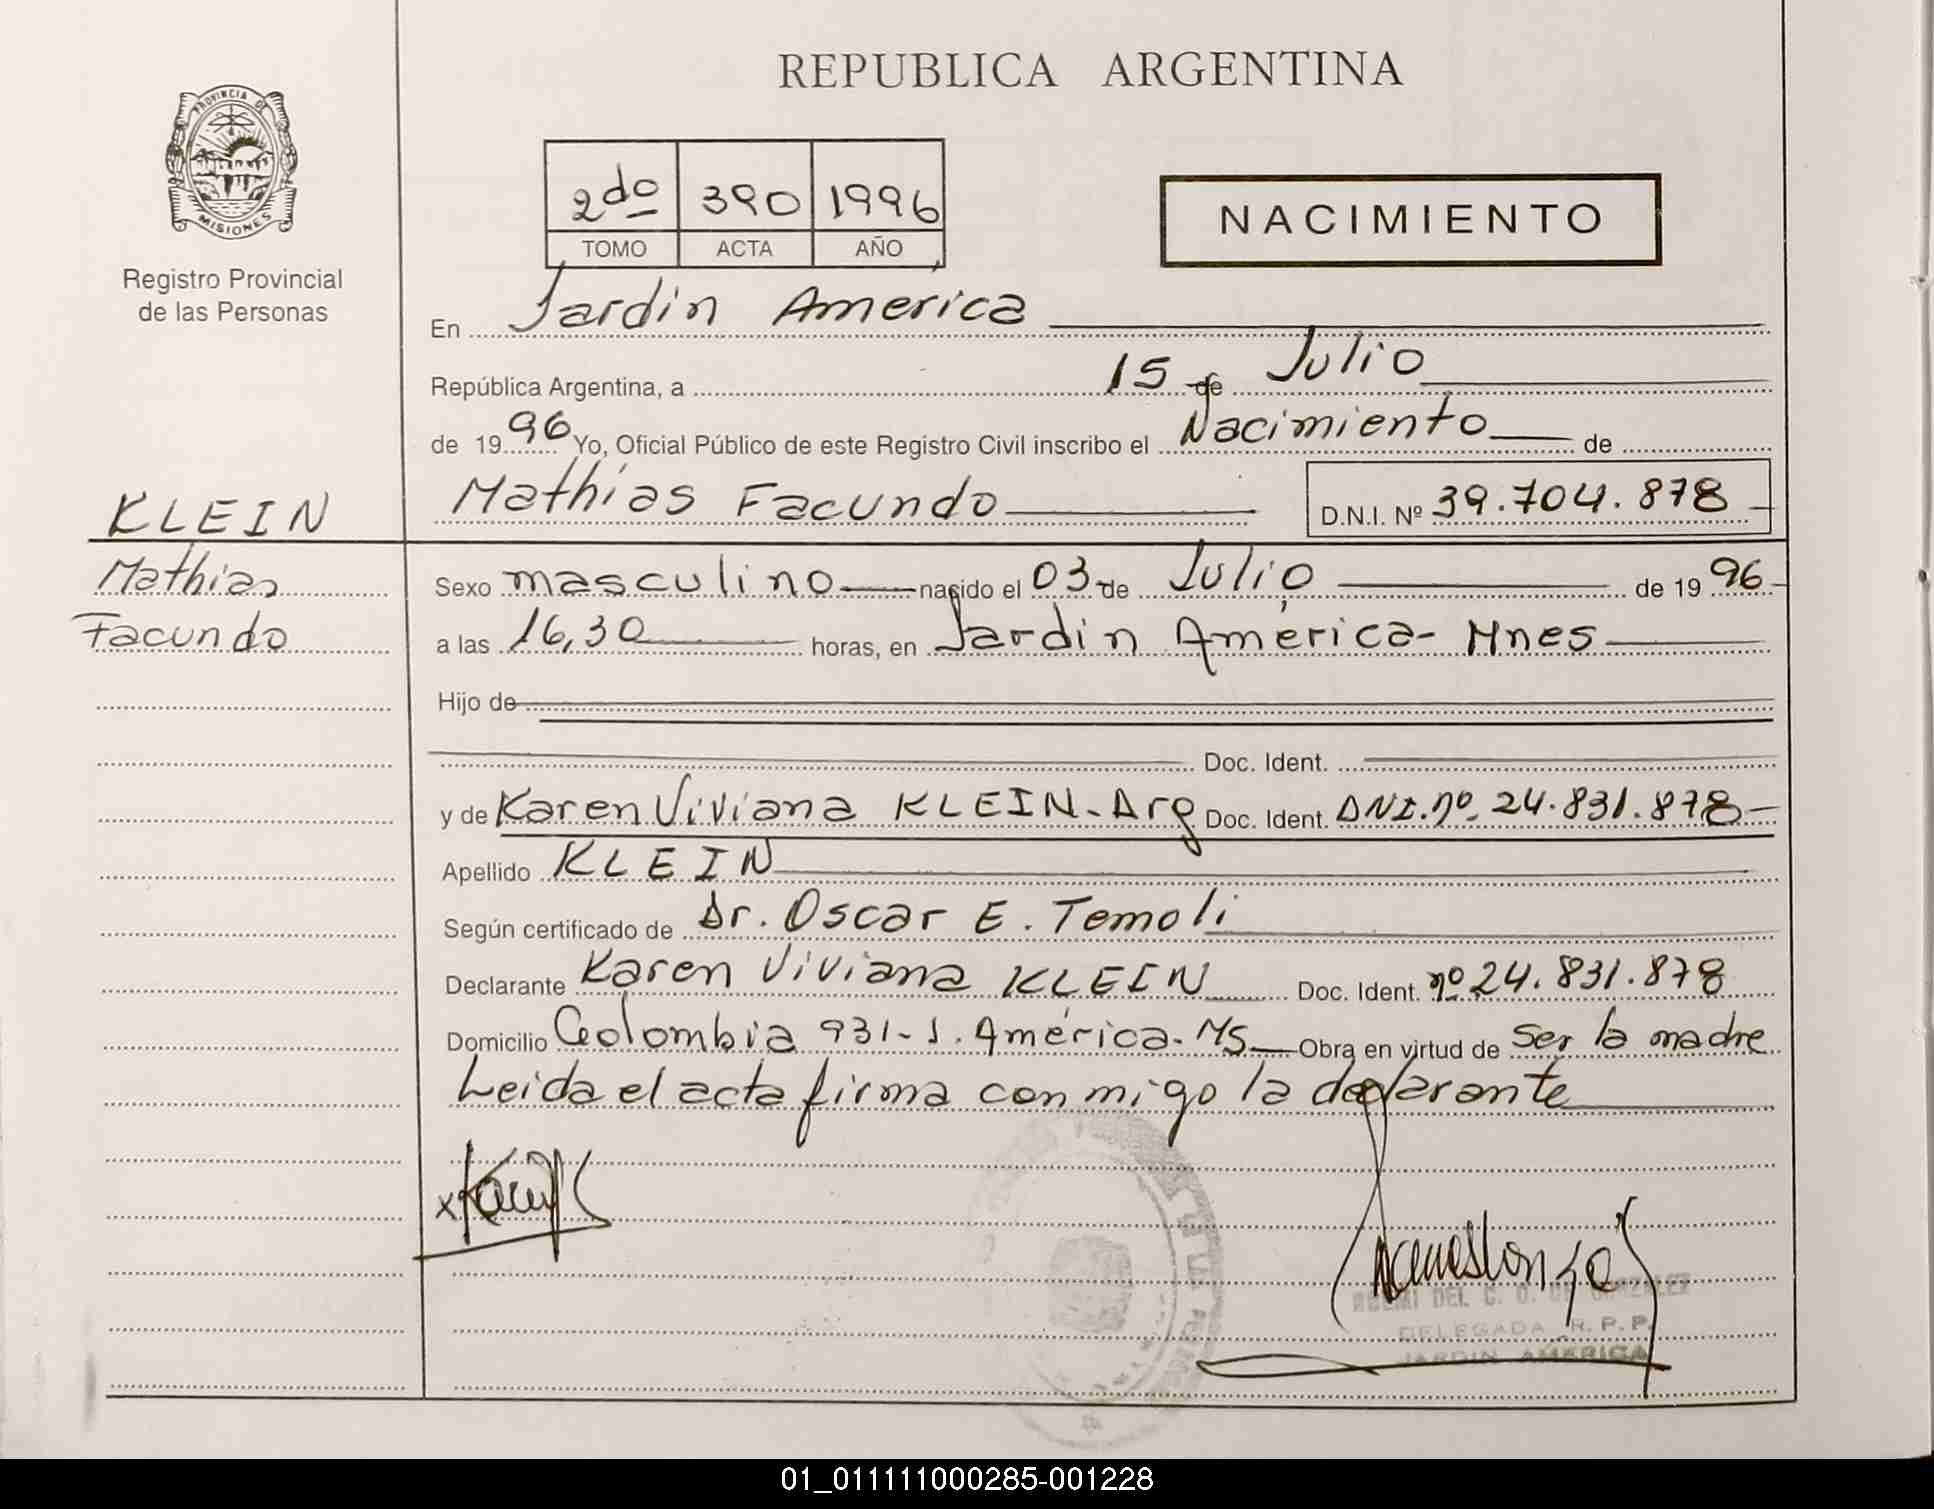 REPUBLICA ARGENTINA
PROVINCIA DE
MISIONES
Registro Provincial
de las Personas
2do 390 1996
TOMO ACTA AÑO
NACIMIENTO
En Jardin America
República Argentina, a 15 de Julio
de 1996 Yo, Oficial Público de este Registro Civil inscribo el Nacimiento de
KLEIN
Mathias Facundo D.N.I. Nº 39.704.878
Mathias
Facundo
Sexo masculino nacido el 03 de Julio de 1996
a las 16,30 horas, en Jardin América - Mnes
Hijo de
Doc. Ident.
y de Karen Viviana KLEIN - Arg Doc. Ident. DNI. nº 24.831.878
Apellido KLEIN
Según certificado de Dr. Oscar E. Temoli
Declarante Karen Viviana KLEIN Doc. Ident. nº 24.831.878
Domicilio Colombia 931 - J. América - Ms Obra en virtud de ser la madre
Leida el acta firma conmigo la declarante
DEL C. D. DE GONZALEZ
DELEGADA R. P. P.
JARDIN AMERICA
01_011111000285-001228